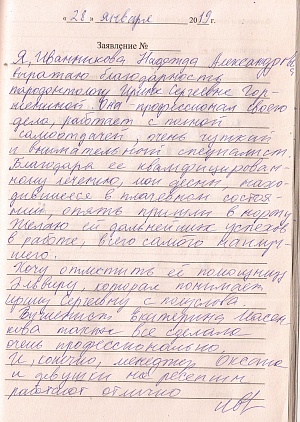 « 28 » января 2019 г.
Заявление №
Я, Иванникова Надежда Александровна
выражаю благодарность
пародонтологу Ирине Сергеевне Гор-
меишиной. Она - профессионал своего
дела, работает с полной
самоотдачей, очень чуткий
и внимательный специалист.
Благодаря её квалифицирован-
ному лечению, мои десны, нахо-
дившиеся в плачевном состоя-
нии, опять пришли в норму.
Желаю ей дальнейших успехов
в работе, всего самого наилуч-
шего.
Хочу отметить её помощницу
Эльвиру, которая понимает
Ирину Сергеевну с полуслова
Екатерина
также все сделала
очень профессионально.
И, конечно, менеджер Оксана
и девушки на ресепшн
работают отлично